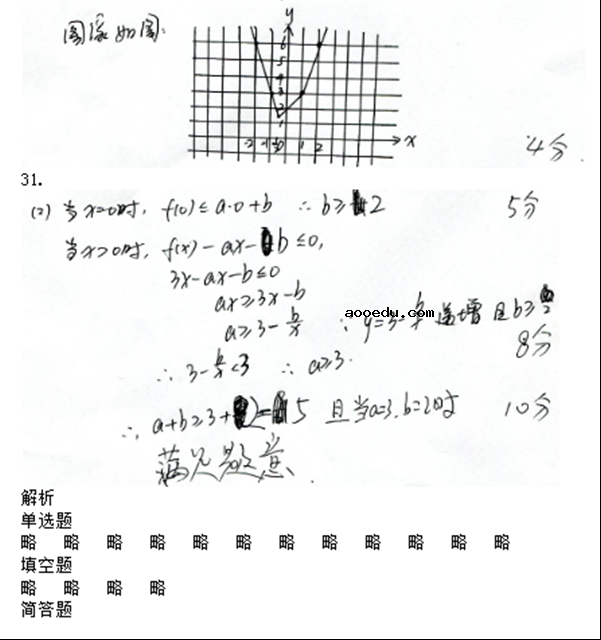 图像如图:
y
6
5
4
3
2
1
-2 -1 0 1 2 x
4分
31.
(2) 当x=0时, f(0)≤a·0+b ∴b≥2 5分
当x>0时, f(x)-ax-b≤0,
3x-ax-b≤0
ax≥3x-b
aooedu.com
a≥3-b/x ∵y=3-b/x 递增且b≥2
8分
∴3-b/x<3 ∴a≥3.
∴a+b≥3+2=5 且当a=3,b=2时 10分
满足题意.
解析
单选题
略 略 略 略 略 略 略 略 略 略 略 略
填空题
略 略 略 略
简答题